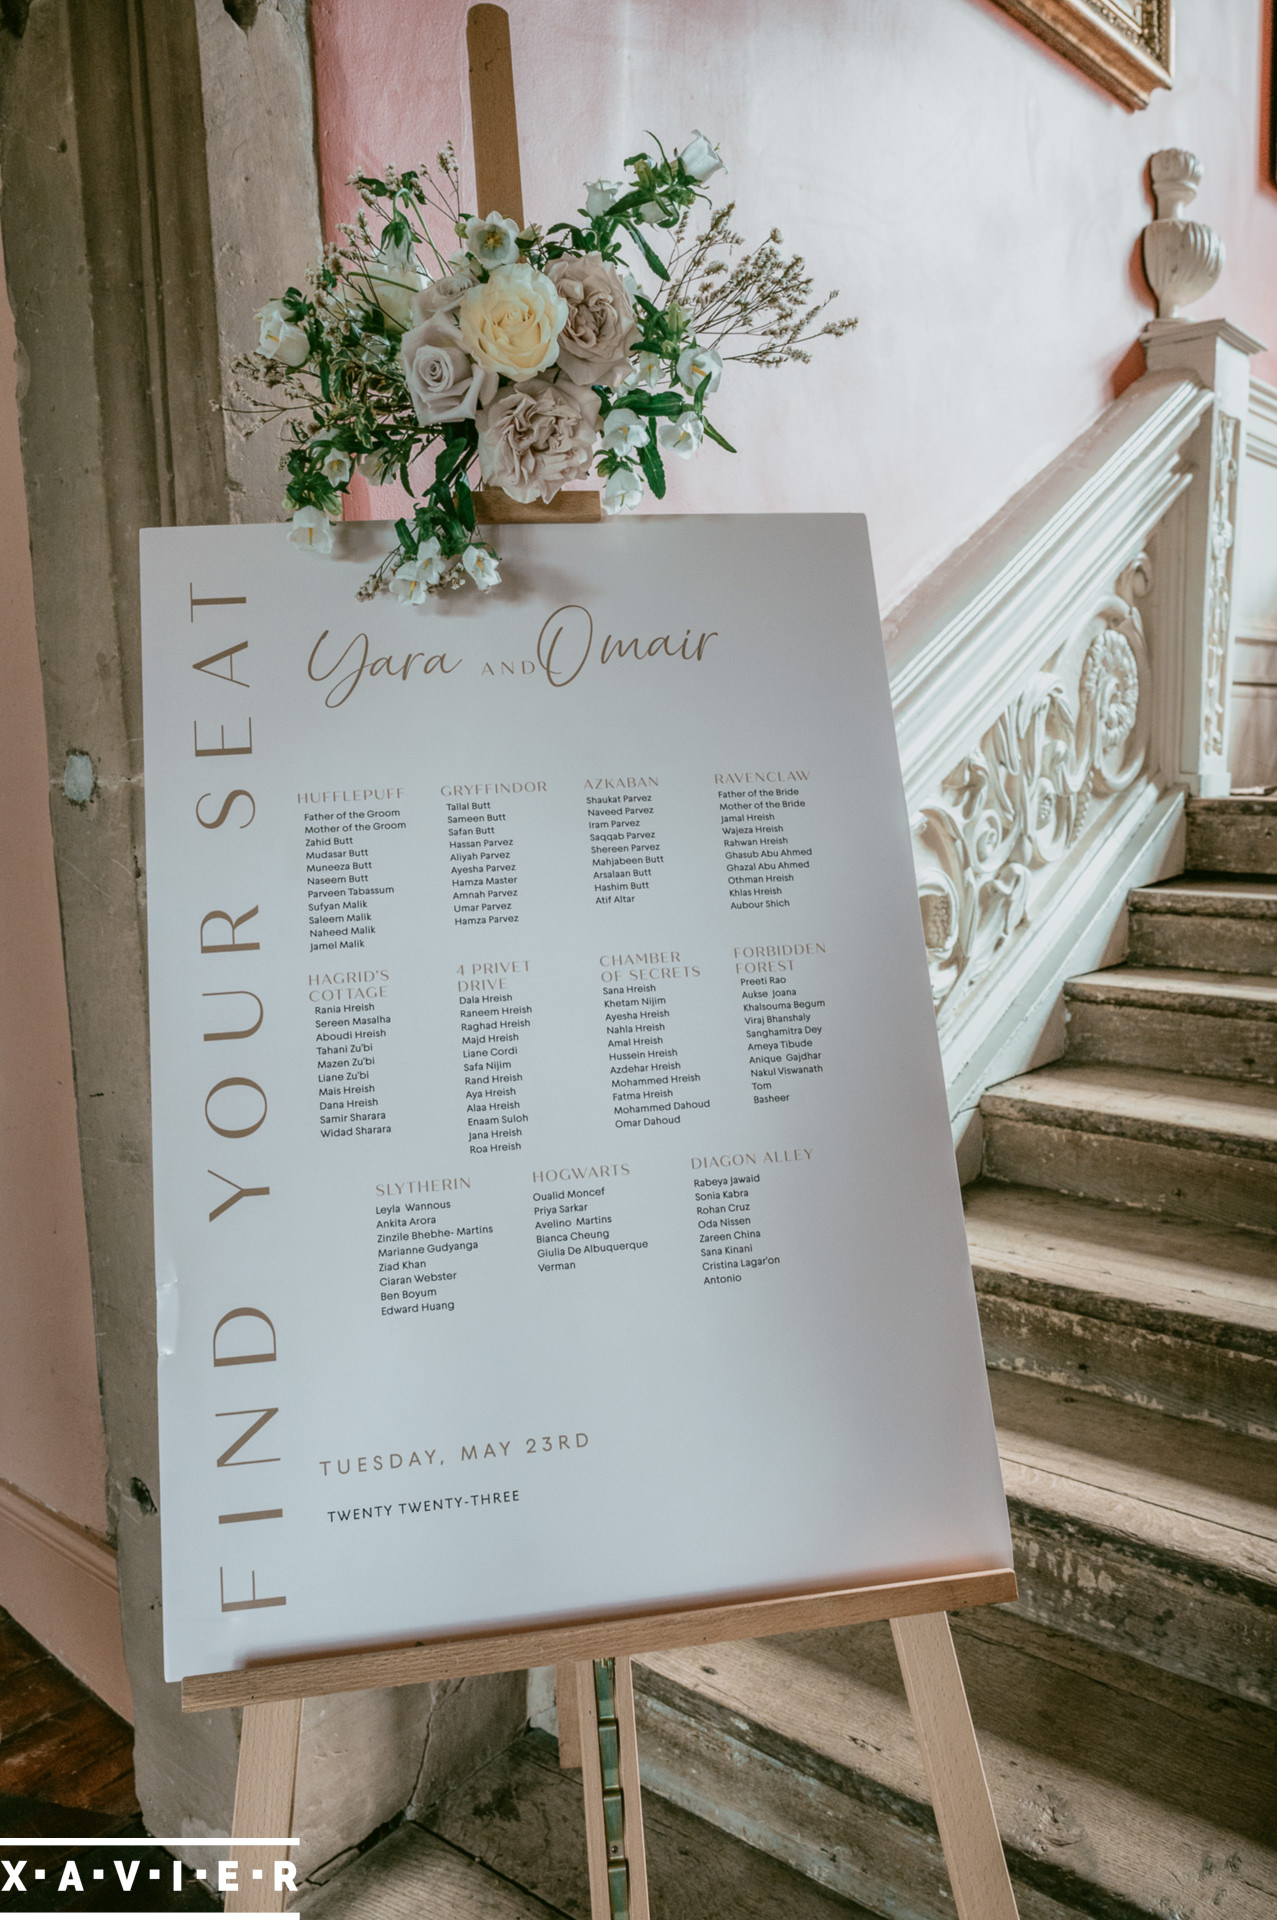 FIND YOUR SEAT
Yara AND Omair
HUFFLEPUFF
Father of the Groom
Mother of the Groom
Zahid Butt
Mudasar Butt
Muneeza Butt
Naseem Butt
Parveen Tabassum
Sufyan Malik
Saleem Malik
Naheed Malik
Jamel Malik
GRYFFINDOR
Tallal Butt
Sameen Butt
Safan Butt
Hassan Parvez
Aliyah Parvez
Ayesha Parvez
Hamza Master
Amnah Parvez
Umar Parvez
Hamza Parvez
AZKABAN
Shaukat Parvez
Naveed Parvez
Iram Parvez
Saqqab Parvez
Shereen Parvez
Mahjabeen Butt
Arsalaan Butt
Hashim Butt
Atif Altar
RAVENCLAW
Father of the Bride
Mother of the Bride
Jamal Hreish
Wajeza Hreish
Rahwan Hreish
Ghasub Abu Ahmed
Ghazal Abu Ahmed
Othman Hreish
Khlas Hreish
Aubour Shich
HAGRID'S
COTTAGE
Rania Hreish
Sereen Masalha
Aboudi Hreish
Tahani Zu'bi
Mazen Zu'bi
Liane Zu'bi
Mais Hreish
Dana Hreish
Samir Sharara
Widad Sharara
4 PRIVET
DRIVE
Dala Hreish
Raneem Hreish
Raghad Hreish
Majd Hreish
Liane Cordi
Safa Nijim
Rand Hreish
Aya Hreish
Alaa Hreish
Enaam Suloh
Jana Hreish
Roa Hreish
CHAMBER
OF SECRETS
Sana Hreish
Khetam Nijim
Ayesha Hreish
Nahla Hreish
Amal Hreish
Hussein Hreish
Azdehar Hreish
Mohammed Hreish
Fatma Hreish
Mohammed Dahoud
Omar Dahoud
FORBIDDEN
FOREST
Preeti Rao
Aukse Joana
Khalsouma Begum
Viraj Bhanshaly
Sanghamitra Dey
Ameya Tibude
Anique Gajdhar
Nakul Viswanath
Tom
Basheer
SLYTHERIN
Leyla Wannous
Ankita Arora
Zinzile Bhebhe- Martins
Marianne Gudyanga
Ziad Khan
Ciaran Webster
Ben Boyum
Edward Huang
HOGWARTS
Oualid Moncef
Priya Sarkar
Avelino Martins
Bianca Cheung
Giulia De Albuquerque
Verman
DIAGON ALLEY
Rabeya Jawaid
Sonia Kabra
Rohan Cruz
Oda Nissen
Zareen China
Sana Kinani
Cristina Lagar'on
Antonio
TUESDAY, MAY 23RD
TWENTY TWENTY-THREE
X·A·V·I·E·R